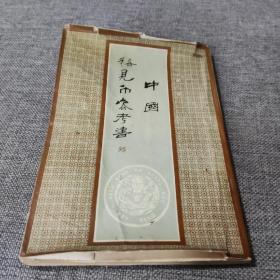 中國
稀見币參考書